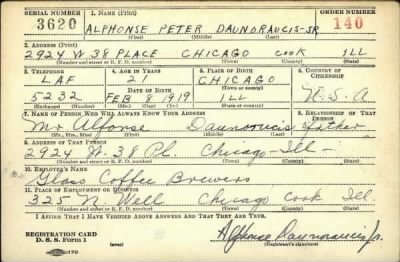 SERIAL NUMBER 1. NAME (Print) ORDER NUMBER
3620 ALPHONSE PETER DAUNORAUCIS-JR 140
(First) (Middle) (Last)
2. ADDRESS (Print)
2924 W 38 PLACE CHICAGO COOK ILL
(Number and street or R. F. D. number) (Town) (County) (State)
3. TELEPHONE 4. AGE IN YEARS 5. PLACE OF BIRTH 6. COUNTRY OF CITIZENSHIP
LAF 21 CHICAGO
DATE OF BIRTH (Town or county)
5232 FEB 1919 ILL U.S.A
(Exchange) (Number) (Mo.) (Day) (Yr.) (State or country)
7. NAME OF PERSON WHO WILL ALWAYS KNOW YOUR ADDRESS RELATIONSHIP OF THAT PERSON
Mr Alfonse Daunoraucis Father
(Mr., Mrs., Miss) (First) (Middle) (Last)
8. ADDRESS OF THAT PERSON
2924 W. 38 Pl. Chicago Ill -
(Number and street or R. F. D. number) (Town) (County) (State)
9. EMPLOYER'S NAME
Glass Coffee Brewers
10. PLACE OF EMPLOYMENT OR BUSINESS
325 N. Well Chicago Cook Ill.
(Number and street or R. F. D. number) (Town) (County) (State)
I AFFIRM THAT I HAVE VERIFIED ABOVE ANSWERS AND THAT THEY ARE TRUE.
REGISTRATION CARD
D. S. S. Form 1 (over) Alphonse Daunoraucis Jr.
(Registrant's signature)